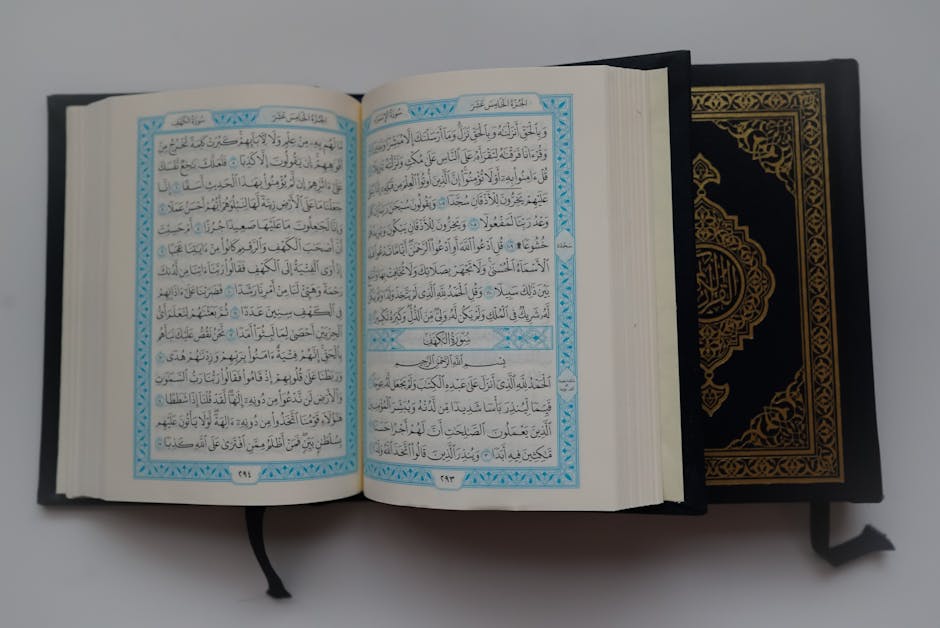 الجُزءُ الخَامِسَ عَشَرَ
سُورَةُ الإِسْرَاء
وَبِٱلْحَقِّ أَنزَلْنَٰهُ وَبِٱلْحَقِّ نَزَلَ ۗ وَمَآ أَرْسَلْنَٰكَ إِلَّا مُبَشِّرًا
وَقُرْءَانًا فَرَقْنَٰهُ لِتَقْرَأَهُۥ عَلَى ٱلنَّاسِ عَلَىٰ مُكْثٍ وَنَزَّلْنَٰهُ
قُلْ ءَامِنُوا۟ بِهِۦٓ أَوْ لَا تُؤْمِنُوٓا۟ ۚ إِنَّ ٱلَّذِينَ أُوتُوا۟ ٱلْعِلْمَ مِن قَبْلِهِۦٓ
عَلَيْهِمْ يَخِرُّونَ لِلْأَذْقَانِ سُجَّدًا ١٠٧ وَيَقُولُونَ سُبْحَٰنَ رَبِّنَآ إِن كَانَ
وَعْدُ رَبِّنَا لَمَفْعُولًا ١٠٨ وَيَخِرُّونَ لِلْأَذْقَانِ يَبْكُونَ وَيَزِيدُهُمْ
خُشُوعًا ۩ ١٠٩ قُلِ ٱدْعُوا۟ ٱللَّهَ أَوِ ٱدْعُوا۟ ٱلرَّحْمَٰنَ ۖ أَيًّا مَّا تَدْعُوا۟ فَلَهُ
ٱلْأَسْمَآءُ ٱلْحُسْنَىٰ ۚ وَلَا تَجْهَرْ بِصَلَاتِكَ وَلَا تُخَافِتْ بِهَا
بَيْنَ ذَٰلِكَ سَبِيلًا ١١٠ وَقُلِ ٱلْحَمْدُ لِلَّهِ ٱلَّذِى لَمْ يَتَّخِذْ وَلَدًا وَلَمْ يَكُن
لَّهُۥ شَرِيكٌ فِى ٱلْمُلْكِ وَلَمْ يَكُن لَّهُۥ وَلِىٌّ مِّنَ ٱلذُّلِّ ۖ وَكَبِّرْهُ تَكْبِيرًۢا
سُورَةُ الكَهْفِ
بِسْمِ ٱللَّهِ ٱلرَّحْمَٰنِ ٱلرَّحِيمِ
ٱلْحَمْدُ لِلَّهِ ٱلَّذِىٓ أَنزَلَ عَلَىٰ عَبْدِهِ ٱلْكِتَٰبَ وَلَمْ يَجْعَل لَّهُۥ عِوَجَا
قَيِّمًا لِّيُنذِرَ بَأْسًا شَدِيدًا مِّن لَّدُنْهُ وَيُبَشِّرَ ٱلْمُؤْمِنِينَ
ٱلَّذِينَ يَعْمَلُونَ ٱلصَّٰلِحَٰتِ أَنَّ لَهُمْ أَجْرًا حَسَنًا
مَّٰكِثِينَ فِيهِ أَبَدًا ٣ وَيُنذِرَ ٱلَّذِينَ قَالُوا۟ ٱتَّخَذَ ٱللَّهُ وَلَدًا
٢٩٣
سَجْدَة
الجُزءُ الخَامِسَ عَشَرَ
سُورَةُ الكَهْفِ
مَّا لَهُم بِهِۦ مِنْ عِلْمٍ وَلَا لِـَٔابَآئِهِمْ ۚ كَبُرَتْ كَلِمَةً تَخْرُجُ مِنْ
أَفْوَٰهِهِمْ ۚ إِن يَقُولُونَ إِلَّا كَذِبًا ٥ فَلَعَلَّكَ بَٰخِعٌ نَّفْسَكَ
عَلَىٰٓ ءَاثَٰرِهِمْ إِن لَّمْ يُؤْمِنُوا۟ بِهَٰذَا ٱلْحَدِيثِ أَسَفًا ٦ إِنَّا
جَعَلْنَا مَا عَلَى ٱلْأَرْضِ زِينَةً لَّهَا لِنَبْلُوَهُمْ أَيُّهُمْ أَحْسَنُ عَمَلًا ٧
وَإِنَّا لَجَٰعِلُونَ مَا عَلَيْهَا صَعِيدًا جُرُزًا ٨ أَمْ حَسِبْتَ
أَنَّ أَصْحَٰبَ ٱلْكَهْفِ وَٱلرَّقِيمِ كَانُوا۟ مِنْ ءَايَٰتِنَا عَجَبًا ٩
إِذْ أَوَى ٱلْفِتْيَةُ إِلَى ٱلْكَهْفِ فَقَالُوا۟ رَبَّنَآ ءَاتِنَا مِن لَّدُنكَ
رَحْمَةً وَهَيِّئْ لَنَا مِنْ أَمْرِنَا رَشَدًا ١٠ فَضَرَبْنَا عَلَىٰٓ ءَاذَانِهِمْ
فِى ٱلْكَهْفِ سِنِينَ عَدَدًا ١١ ثُمَّ بَعَثْنَٰهُمْ لِنَعْلَمَ أَىُّ
ٱلْحِزْبَيْنِ أَحْصَىٰ لِمَا لَبِثُوٓا۟ أَمَدًا ١٢ نَّحْنُ نَقُصُّ عَلَيْكَ نَبَأَهُم
بِٱلْحَقِّ ۚ إِنَّهُمْ فِتْيَةٌ ءَامَنُوا۟ بِرَبِّهِمْ وَزِدْنَٰهُمْ هُدًى ١٣
وَرَبَطْنَا عَلَىٰ قُلُوبِهِمْ إِذْ قَامُوا۟ فَقَالُوا۟ رَبُّنَا رَبُّ ٱلسَّمَٰوَٰتِ
وَٱلْأَرْضِ لَن نَّدْعُوَا۟ مِن دُونِهِۦٓ إِلَٰهًا ۖ لَّقَدْ قُلْنَآ إِذًا شَطَطًا ١٤
هَٰٓؤُلَآءِ قَوْمُنَا ٱتَّخَذُوا۟ مِن دُونِهِۦٓ ءَالِهَةً ۖ لَّوْلَا يَأْتُونَ عَلَيْهِم
بِسُلْطَٰنٍۭ بَيِّنٍ ۖ فَمَنْ أَظْلَمُ مِمَّنِ ٱفْتَرَىٰ عَلَى ٱللَّهِ كَذِبًا ١٥
٢٩٤